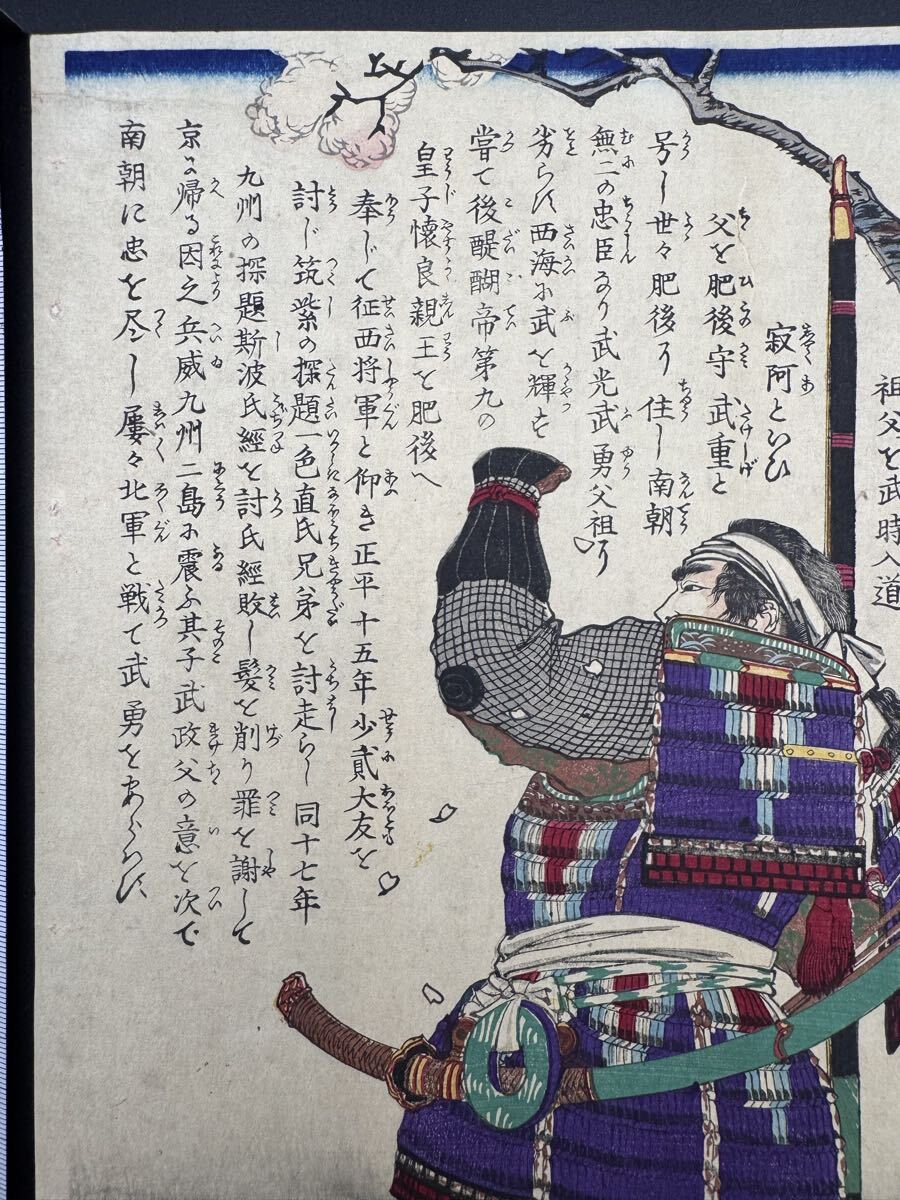 祖父を武時入道
寂阿といひ
父を肥後守武重と
号し世々肥後に住し南朝
無二の忠臣なり武光武勇父祖に
劣らす西海に武を輝す
嘗て後醍醐帝第九の
皇子懐良親王を肥後へ
奉じて征西将軍と仰き正平十五年少貳大友を
討じ筑紫の探題一色直氏兄弟を討走らし同十七年
九州の探題斯波氏經を討氏經敗し髪を削り罪を謝して
京に帰る因之兵威九州二島に震ふ其子武政父の意を次で
南朝に忠を尽し屢々北軍と戦て武勇をあらはす